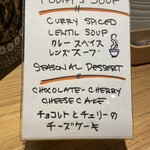 TODAY'S SOUP
CURRY SPICED
LENTIL SOUP
カレースパイス
レンズスープ
SEASONAL DESSERT
CHOCOLATE-CHERRY
CHEESECAKE
チョコレトとチェリーの
チーズケーキ